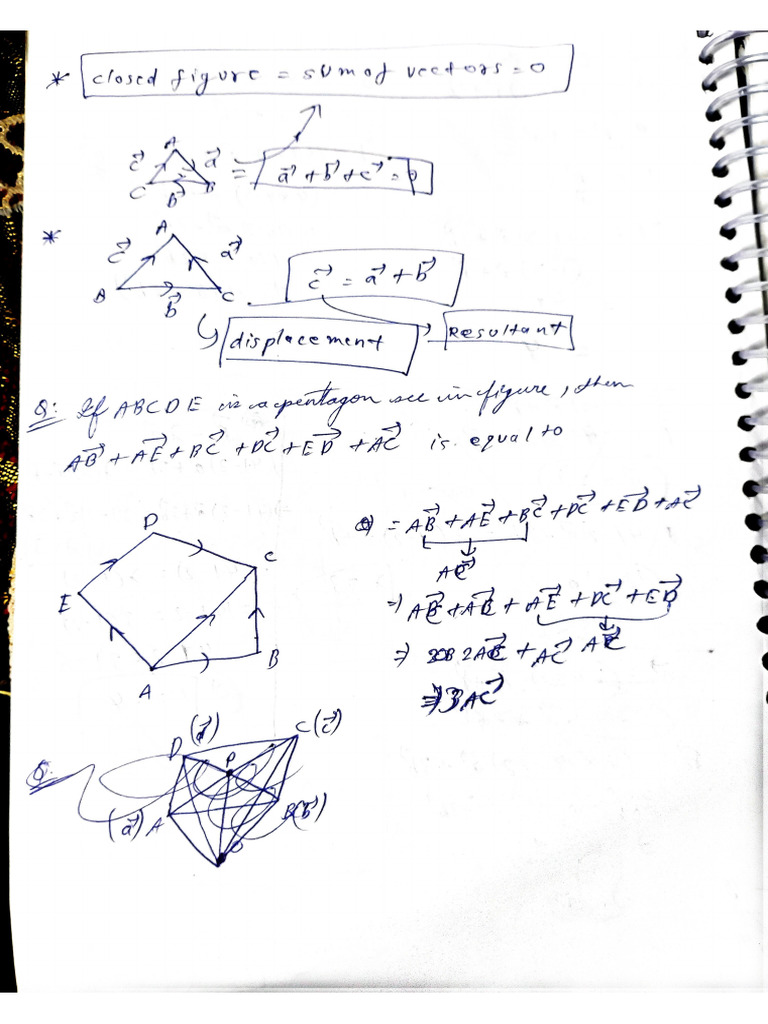 * closed figure = sum of vectors = 0
A
c⃗ a⃗
C b⃗ B
= a⃗ + b⃗ + c⃗ = 0
*
A
c⃗ a⃗
B b⃗ C
c⃗ = a⃗ + b⃗
displacement Resultant
Q: If ABCDE is a pentagon see in figure, then
AB⃗ + AE⃗ + BC⃗ + DC⃗ + ED⃗ + AC⃗ is equal to
D
C
E
B
A
= AB⃗ + AE⃗ + BC⃗ + DC⃗ + ED⃗ + AC⃗
AC⃗
⇒ AC⃗ + AC⃗ + AE⃗ + DC⃗ + ED⃗
AC⃗
⇒ 2AC⃗ + AC⃗
⇒ 3AC⃗
Q.
D (d⃗) C (c⃗)
P
(a⃗) A B (b⃗)
O